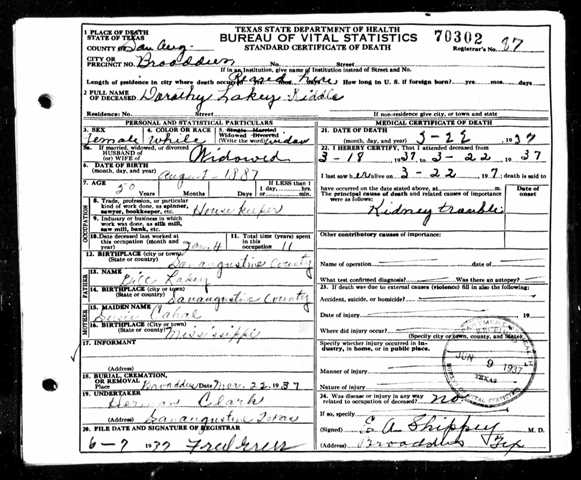 TEXAS STATE DEPARTMENT OF HEALTH
BUREAU OF VITAL STATISTICS
STANDARD CERTIFICATE OF DEATH
70302
Registrar's No. 37
1 PLACE OF DEATH
STATE OF TEXAS
COUNTY OF San Aug.
CITY OR PRECINCT NO. Broaddus No. Street
If in an Institution, give name of Institution instead of Street and No.
Length of residence in city where death occurred How long in U. S. if foreign born? yrs. mos. days
2 FULL NAME OF DECEASED Dorothy Lakey Riddle
Residence: No. Street If non-residence give city, or town and state
PERSONAL AND STATISTICAL PARTICULARS
3. SEX 4. COLOR OR RACE 5. Single Married
Widowed Divorced
(Write the word) widow
Female White
5a. If married, widowed, or divorced
HUSBAND OF
(or) WIFE OF Widowed
6. DATE OF BIRTH
(month, day, and year) August - 1887
7. AGE IF LESS THAN 1 day
50 Years Months Days Hours Min.
OCCUPATION
8. Trade, profession, or particular kind of work done, as spinner, sawyer, bookkeeper, etc. Housekeeper
9. Industry or business in which work was done, as silk mill, saw mill, bank, etc.
10. Date deceased last worked at this occupation (month and year)
11. Total time (years) spent in this occupation 11
12. BIRTHPLACE (City or town)
(State or country) Sanaugustine County
FATHER
13. NAME Lakey
14. BIRTHPLACE (City or town)
(State or country) Sanaugustine County
MOTHER
15. MAIDEN NAME
16. BIRTHPLACE (City or town)
(State or country) Mississippi
17. INFORMANT
(Address)
18. BURIAL, CREMATION, OR REMOVAL
Place Broaddus Date Mar. 22, 1937
19. UNDERTAKER Herman Clark
(Address) Sanaugustine Texas
20. FILE DATE AND SIGNATURE OF REGISTRAR
6-7 1937
MEDICAL CERTIFICATE OF DEATH
21. DATE OF DEATH
(month, day, year) 3-22, 1937
22. I HEREBY CERTIFY, That I attended deceased from
3-18 1937 to 3-22 1937
I last saw her alive on 3-22 1937, death is said to
have occurred on the date stated above, at m.
The principal cause of death and related causes of importance were as follows: Date of onset
Kidney trouble
Other contributory causes of importance:
Name of operation
Date of
What test confirmed diagnosis? Was there an autopsy?
23. If death was due to external causes (violence) fill in also the following:
Accident, suicide, or homicide?
Date of injury 19
Where did injury occur?
(Specify city, town, county, and State)
Specify whether injury occurred in industry, in home, or in public place.
Manner of injury
Nature of injury
24. Was disease or injury in any way related to occupation of deceased? no
If so, specify
(Signed) E A Shippey M. D.
(Address) Broaddus Tex
JUN 9 1937
TEXAS